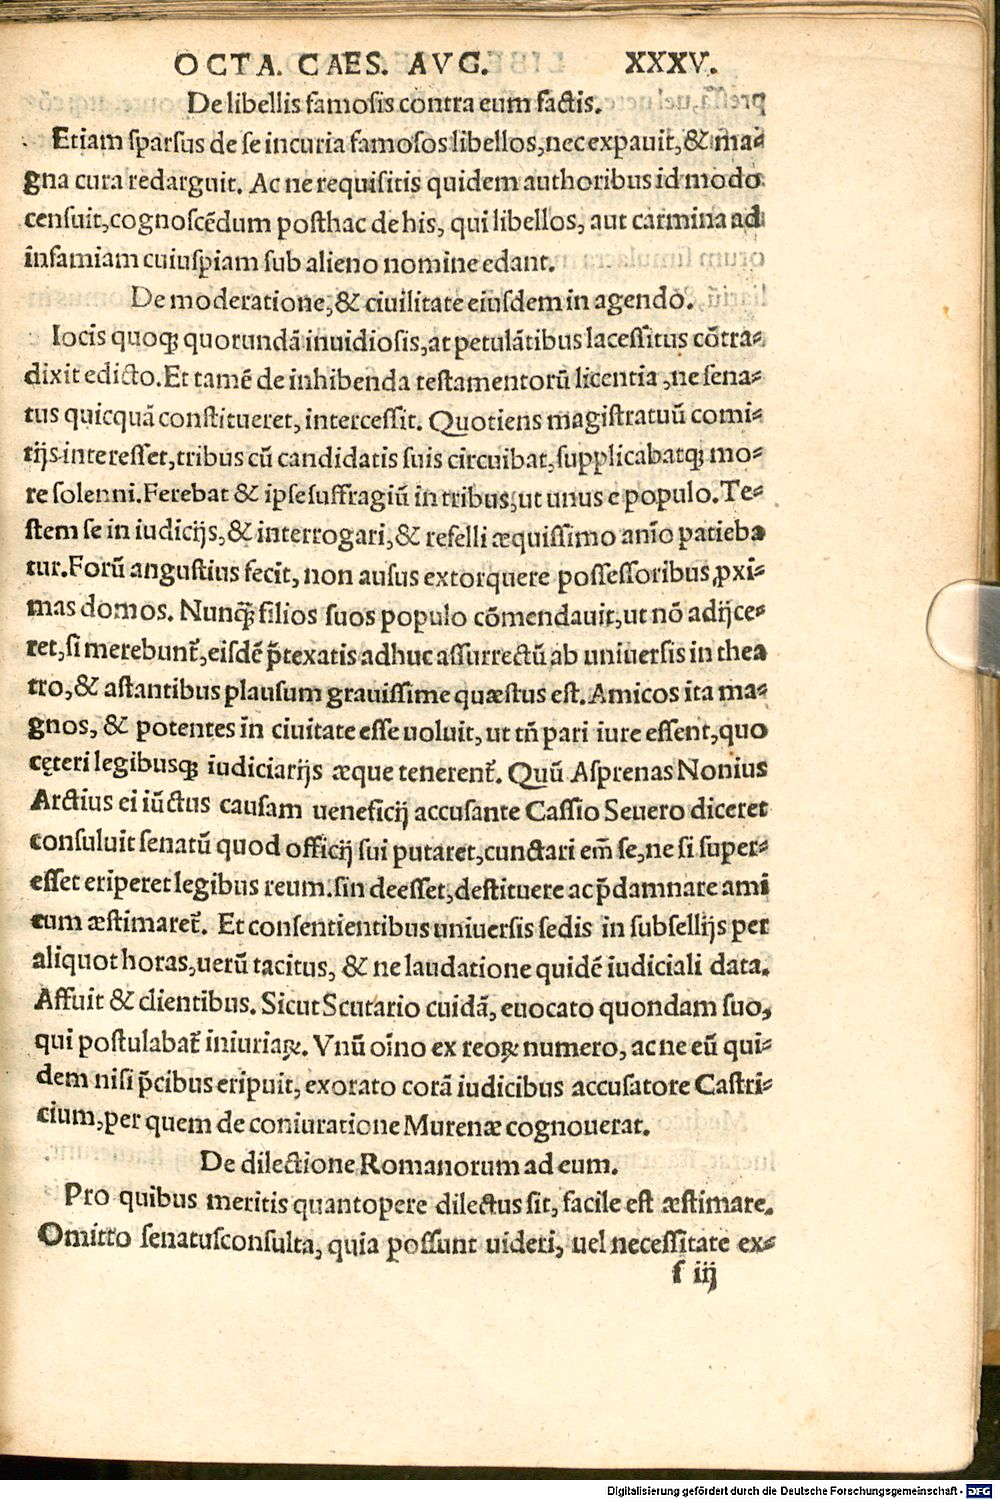 OCTA. CAES. AVG. XXXV.
De libellis famosis contra eum factis.
Etiam sparsus de se in curia famosos libellos, nec expauit, & ma-
gna cura redarguit. Ac ne requisitis quidem authoribus id modo
censuit, cognoscēdum posthac de his, qui libellos, aut carmina ad
infamiam cuiuspiam sub alieno nomine edant.
De moderatione, & ciuilitate eiusdem in agendo.
Iocis quoqꝫ quorundā inuidiosis, at petulātibus lacessitus cōtra-
dixit edicto. Et tamē de inhibenda testamentorū licentia, ne sena-
tus quicquā constitueret, intercessit. Quotiens magistratuū comi-
tijs interesset, tribus cū candidatis suis circuibat, supplicabatqꝫ mo-
re solenni. Ferebat & ipse suffragiū in tribus, ut unus e populo. Te-
stem se in iudicijs, & interrogari, & refelli æquissimo anīo patieba
tur. Forū angustius fecit, non ausus extorquere possessoribus ꝓxi-
mas domos. Nunqꝫ̄ filios suos populo cōmendauit, ut nō adijce-
ret, si merebunt᷑, eisdē p̄textatis adhuc assurrectū ab uniuersis in thea
tro, & astantibus plausum grauissime quæstus est. Amicos ita ma-
gnos, & potentes in ciuitate esse uoluit, ut tn̄ pari iure essent, quo
cęteri legibusqꝫ iudiciarijs æque tenerent᷑. Quū Asprenas Nonius
Arctius ei iūctus causam ueneficij accusante Cassio Seuero diceret
consuluit senatū quod officij sui putaret, cunctari em̄ se, ne si super-
esset eriperet legibus reum. sin deesset, destituere ac p̄damnare ami
cum æstimaret᷑. Et consentientibus uniuersis sedis in subsellijs per
aliquot horas, uerū tacitus, & ne laudatione quidē iudiciali data.
Affuit & clientibus. Sicut Scutario cuidā, euocato quondam suo,
qui postulabat᷑ iniuriaꝝ. Vnū oīno ex reoꝝ numero, ac ne eū qui-
dem nisi p̄cibus eripuit, exorato corā iudicibus accusatore Castri-
cium, per quem de coniuratione Murenæ cognouerat.
De dilectione Romanorum ad eum.
Pro quibus meritis quantopere dilectus sit, facile est æstimare.
Omitto senatusconsulta, quia possunt uideri, uel necessitate ex-
f iij
Digitalisierung gefördert durch die Deutsche Forschungsgemeinschaft - DFG